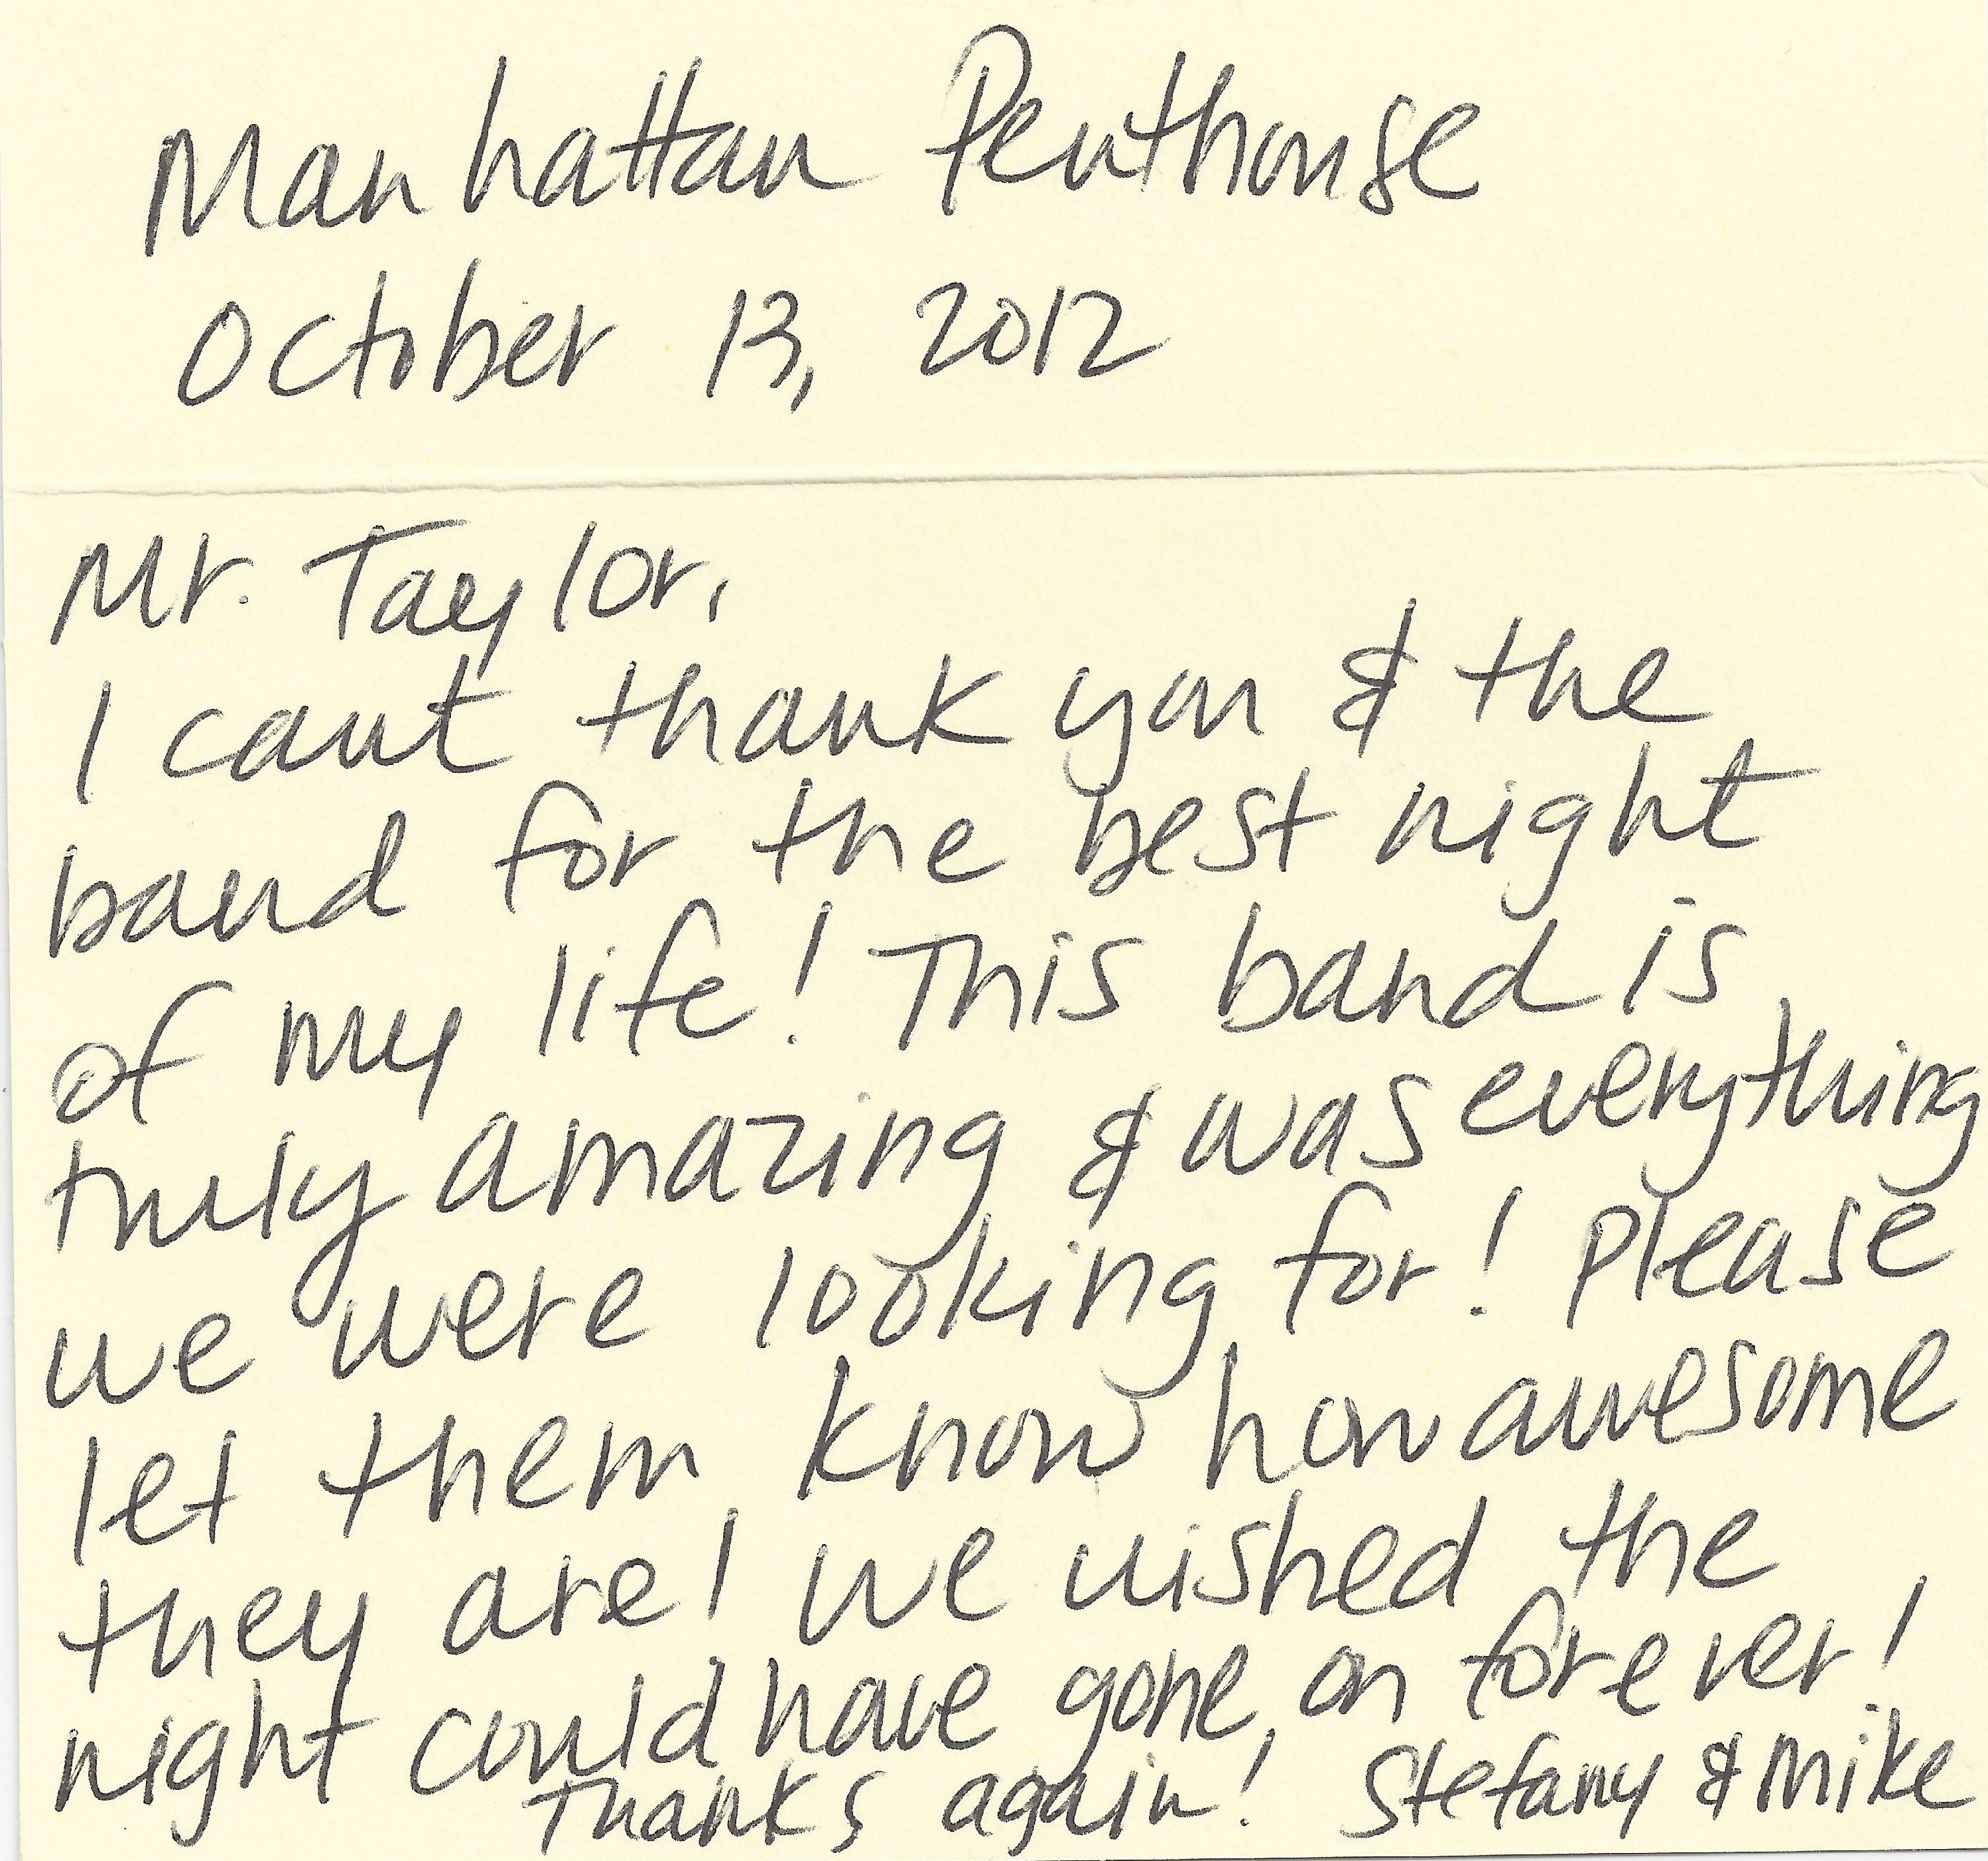 Manhattan Penthouse
October 13, 2012
Mr. Taylor,
I cant thank you & the
band for the best night
of my life! This band is
truly amazing & was everything
we were looking for! Please
let them know how awesome
they are! we wished the
night could have gone on forever!
Thanks again! Stefany & Mike